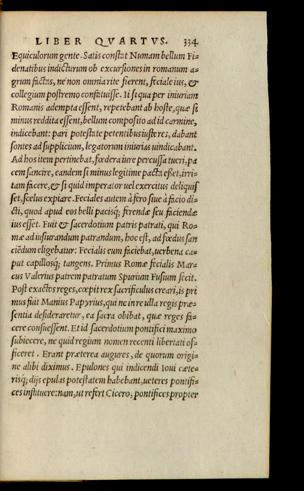 LIBER QVARTVS. 334
Equiculorum gente. Satis constat Numam bellum Fi-
denatibus indicturum ob excursiones in romanum a-
grum factas, ne non omnia rite fierent, feciale ius, &
collegium postremo constituisse. ii si qua per iniuriam
Romanis adempta essent, repetebant ab hoste, quæ si
minus reddita essent, bellum composito ad id carmine,
indicebant: pari potestate petentibus iustæ res, dabant
sontes ad supplicium, legatorum iniurias uindicabant.
Ad hos item pertinebat, fœdera iure percussa tueri, pa
cem sancire, eandem si minus legitime pacta eßet, irri-
tam facere, & si quid imperator uel exercitus deliquis
set, scelus expiare. Feciales autem à fero siue à facio di
cti, quod apud eos belli pacisq; ferendæ seu faciendæ
ius esset. Fuit & sacerdotium patris patrati, qui Ro-
mæ ad iusiurandum patrandum, hoc est, ad fœdus san
ciēdum eligebatur: Fecialis eum faciebat, uerbena ca-
put capillosq; tangens. Primus Romæ fecialis Mar-
cus Valerius patrem patratum Spurium Fusium fecit.
Post exactos reges, cœpit rex sacrificulus creari, is pri
mus fuit Manius Papyrius, qui ne in re ulla regis præ-
sentia desideraretur, ea sacra obibat, quæ reges fa-
cere consueffent. Et id sacerdotium pontifici maximo
subiecere, ne quid regium nomen recenti libertati of-
ficeret. Erant præterea augures, de quorum origi-
ne alibi diximus. Epulones qui indicendi Ioui cæte-
risq; dijs epulas potestatem habebant, ueteres pontifi-
ces instituere: nam, ut refert Cicero, pontifices propter